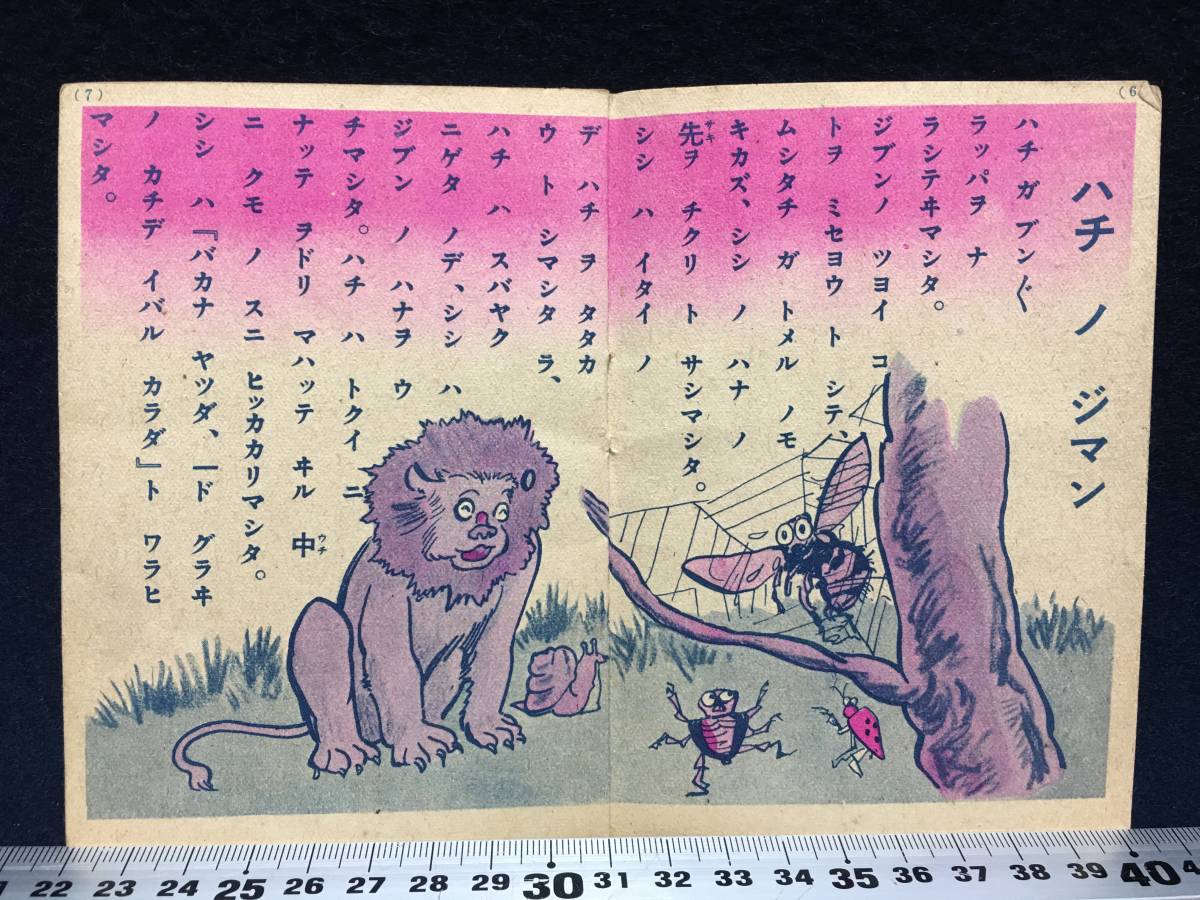 (6
ハチ ノ ジマン
ハチ ガ ブン〲
ラッパヲ ナ
ラシテヰマシタ。
ジブンノ ツヨイ コ
トヲ ミセヨウ ト シテ、
ムシタチ ガ トメル ノモ
キカズ、シシ ノ ハナ ノ
先ヲ チクリ ト サシマシタ。
サキ
シシ ハ イタイ ノ
(7)
デ ハチ ヲ タタカ
ウ ト シマシタ ラ、
ハチ ハ スバヤク
ニゲタ ノデ、シシ ハ
ジブン ノ ハナヲ ウ
チマシタ。ハチ ハ トクイ ニ
ナッテ ヲドリ マハッテ ヰル 中
ウチ
ニ クモ ノ スニ ヒッカカリマシタ。
シシ ハ『バカナ ヤツダ、一ド グラヰ
ノ カチデ イバル カラダ』ト ワラヒ
マシタ。
1 22 23 24 25 26 27 28 29 30 31 32 33 34 35 36 37 38 39 40 4